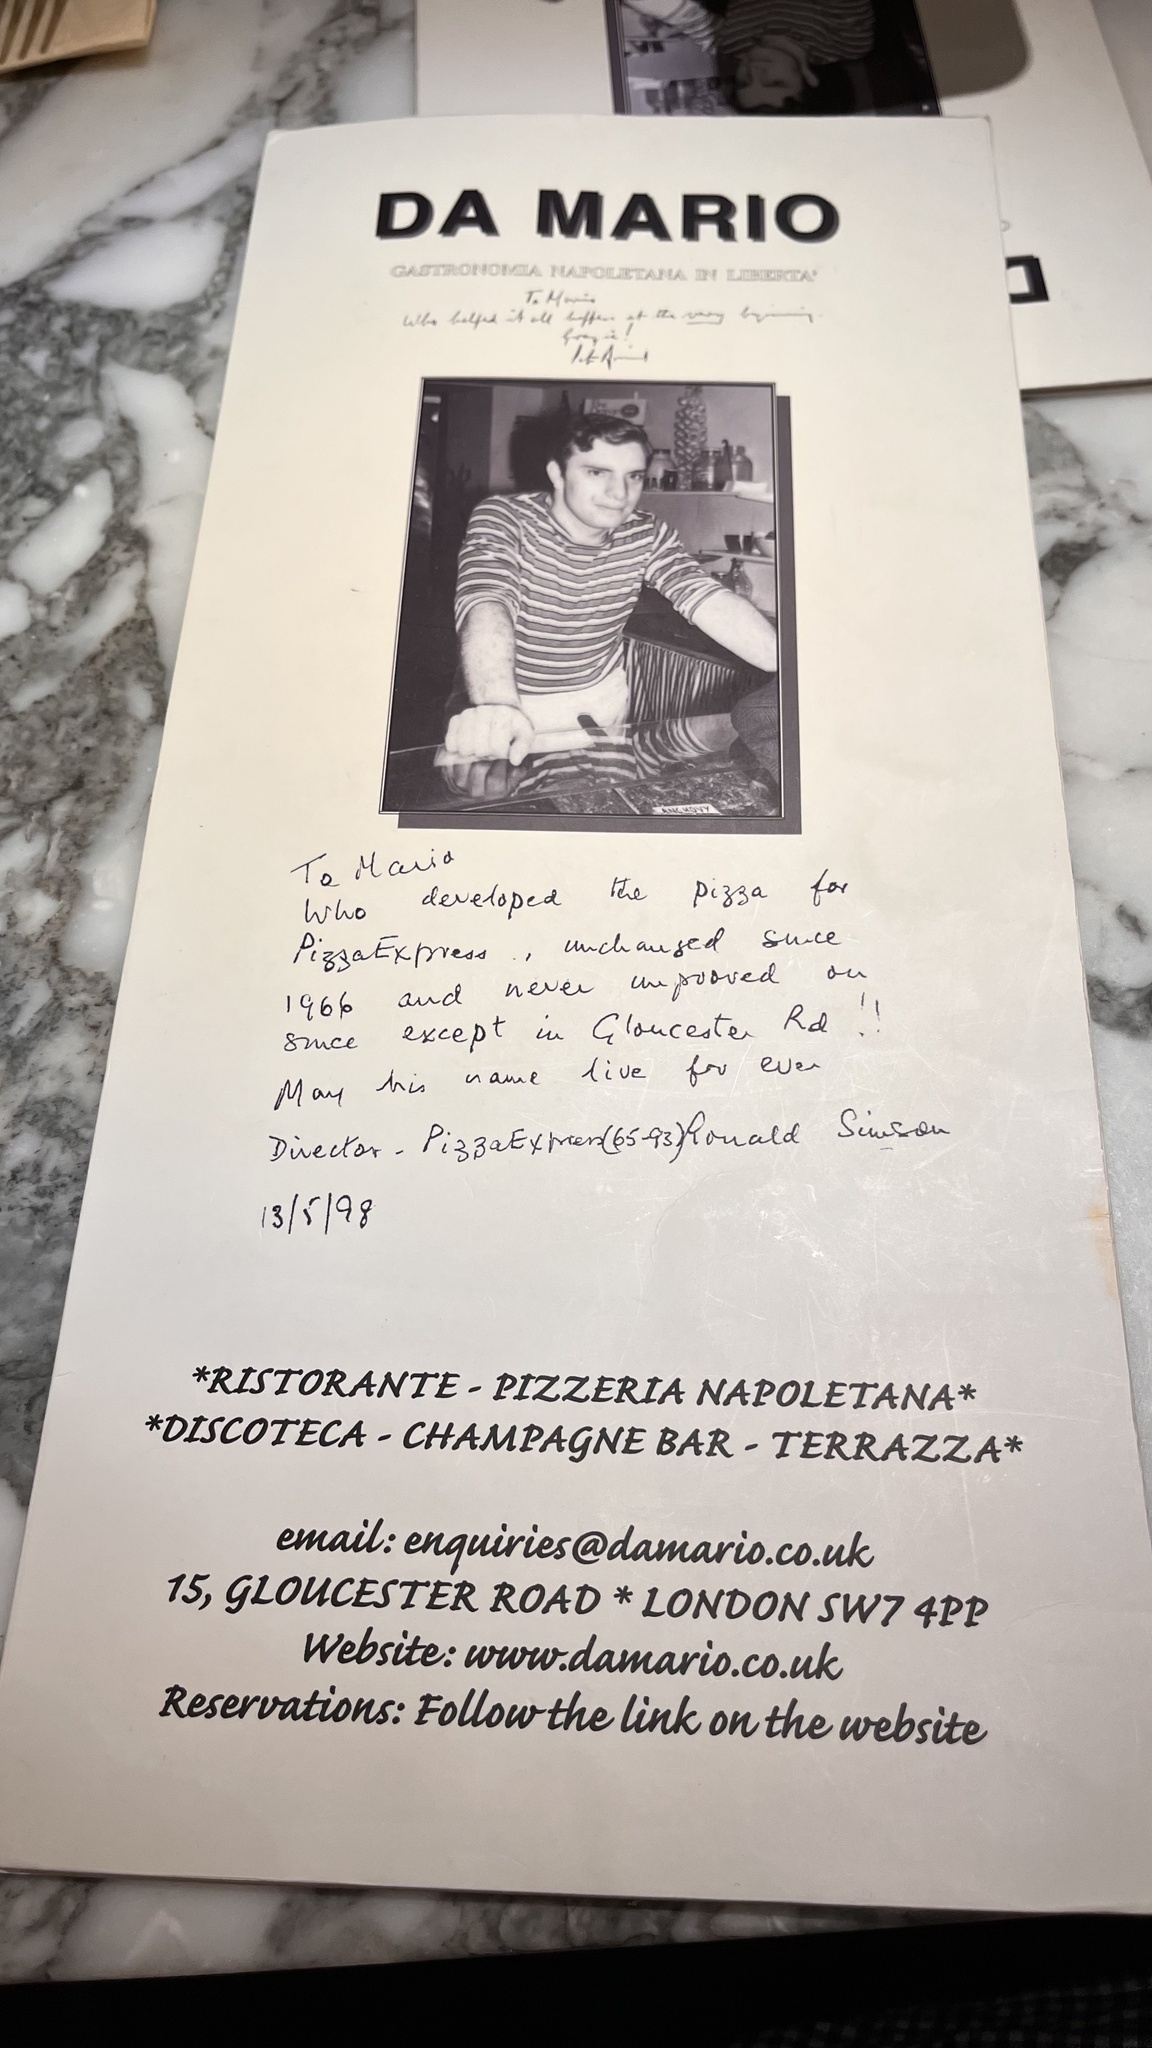 DA MARIO
GASTRONOMIA NAPOLETANA IN LIBERTA'
To Mario
Who helped it all happen at the very beginning
Grazie!
ANCHOVY
To Mario
Who developed the pizza for
PizzaExpress, unchanged since
1966 and never improoved on
since except in Gloucester Rd !!
May his name live for ever
Director - PizzaExpress (65-93) Ronald Simson
13/5/98
*RISTORANTE - PIZZERIA NAPOLETANA*
*DISCOTECA - CHAMPAGNE BAR - TERRAZZA*
email: enquiries@damario.co.uk
15, GLOUCESTER ROAD * LONDON SW7 4PP
Website: www.damario.co.uk
Reservations: Follow the link on the website